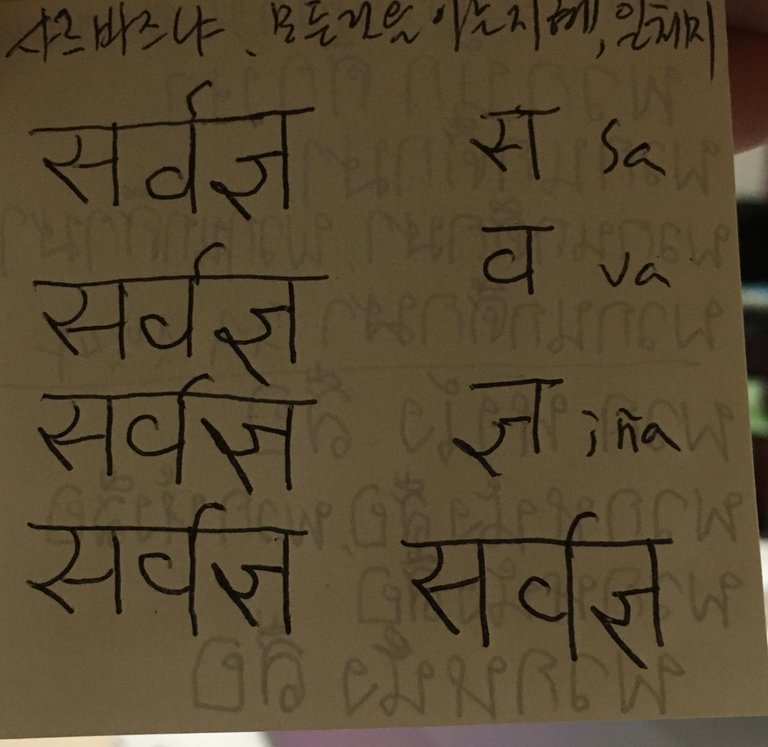 사르바즈냐. 모든것을 아는지혜, 일체지
सर्वज्ञ स sa
सर्वज्ञ व va
सर्वज्ञ ज्ञ jña
सर्वज्ञ सर्वज्ञ